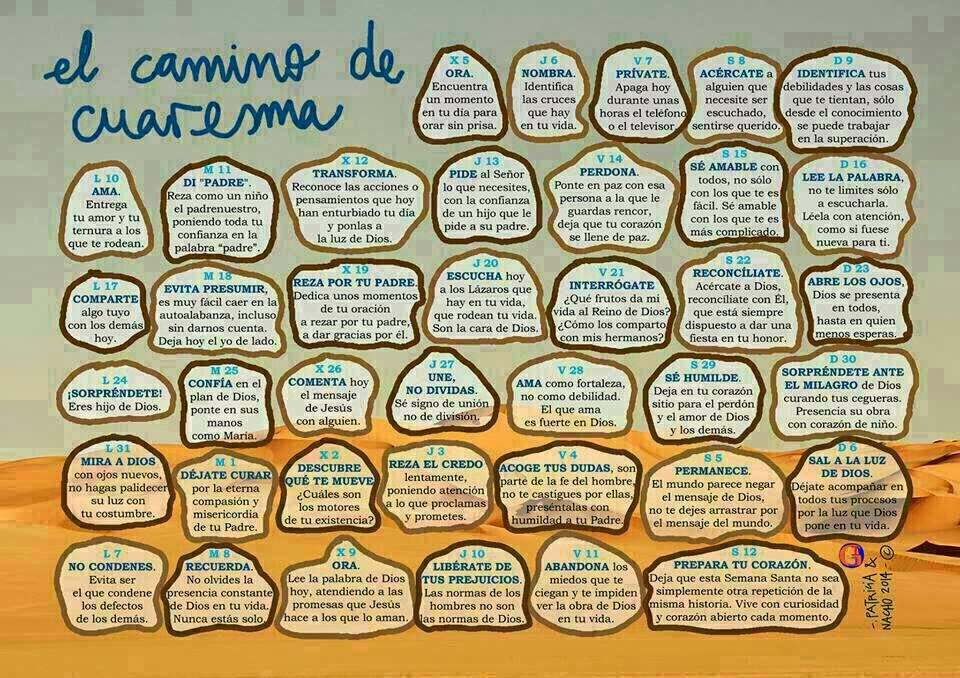 el camino de
cuaresma
X 5
ORA.
Encuentra
un momento
en tu día para
orar sin prisa.
J 6
NOMBRA.
Identifica
las cruces
que hay
en tu vida.
V 7
PRÍVATE.
Apaga hoy
durante unas
horas el teléfono
o el televisor.
S 8
ACÉRCATE a
alguien que
necesite ser
escuchado,
sentirse querido.
D 9
IDENTIFICA tus
debilidades y las cosas
que te tientan, sólo
desde el conocimiento
se puede trabajar
en la superación.
L 10
AMA.
Entrega
tu amor y tu
ternura a los
que te rodean.
M 11
DI "PADRE".
Reza como un niño
el padrenuestro,
poniendo toda tu
confianza en la
palabra “padre”.
X 12
TRANSFORMA.
Reconoce las acciones o
pensamientos que hoy
han enturbiado tu día
y ponlas a
la luz de Dios.
J 13
PIDE al Señor
lo que necesites,
con la confianza
de un hijo que le
pide a su padre.
V 14
PERDONA.
Ponte en paz con esa
persona a la que le
guardas rencor,
deja que tu corazón
se llene de paz.
S 15
SÉ AMABLE con
todos, no sólo
con los que te es
fácil. Sé amable
con los que te es
más complicado.
D 16
LEE LA PALABRA,
no te limites sólo
a escucharla.
Léela con atención,
como si fuese
nueva para ti.
L 17
COMPARTE
algo tuyo
con los demás
hoy.
M 18
EVITA PRESUMIR,
es muy fácil caer en la
autoalabanza, incluso
sin darnos cuenta.
Deja hoy el yo de lado.
X 19
REZA POR TU PADRE.
Dedica unos momentos
de tu oración
a rezar por tu padre,
a dar gracias por él.
J 20
ESCUCHA hoy
a los Lázaros que
hay en tu vida,
que rodean tu vida.
Son la cara de Dios.
V 21
INTERRÓGATE
¿Qué frutos da mi
vida al Reino de Dios?
¿Cómo los comparto
con mis hermanos?
S 22
RECONCÍLIATE.
Acércate a Dios,
reconcíliate con Él,
que está siempre
dispuesto a dar una
fiesta en tu honor.
D 23
ABRE LOS OJOS,
Dios se presenta
en todos,
hasta en quien
menos esperas.
L 24
¡SORPRÉNDETE!
Eres hijo de Dios.
M 25
CONFÍA en el
plan de Dios,
ponte en sus
manos
como María.
X 26
COMENTA hoy
el mensaje
de Jesús
con alguien.
J 27
UNE,
NO DIVIDAS.
Sé signo de unión
no de división.
V 28
AMA como fortaleza,
no como debilidad.
El que ama
es fuerte en Dios.
S 29
SÉ HUMILDE.
Deja en tu corazón
sitio para el perdón
y el amor de Dios
y los demás.
D 30
SORPRÉNDETE ANTE
EL MILAGRO de Dios
curando tus cegueras.
Presencia su obra
con corazón de niño.
L 31
MIRA A DIOS
con ojos nuevos,
no hagas palidecer
su luz con
tu costumbre.
M 1
DÉJATE CURAR
por la eterna
compasión y
misericordia
de tu Padre.
X 2
DESCUBRE
QUÉ TE MUEVE.
¿Cuáles son
los motores
de tu existencia?
J 3
REZA EL CREDO
lentamente,
poniendo atención
a lo que proclamas
y prometes.
V 4
ACOGE TUS DUDAS, son
parte de la fe del hombre,
no te castigues por ellas,
preséntalas con
humildad a tu Padre.
S 5
PERMANECE.
El mundo parece negar
el mensaje de Dios,
no te dejes arrastrar por
el mensaje del mundo.
D 6
SAL A LA LUZ
DE DIOS.
Déjate acompañar en
todos tus procesos
por la luz que Dios
pone en tu vida.
L 7
NO CONDENES.
Evita ser
el que condene
los defectos
de los demás.
M 8
RECUERDA.
No olvides la
presencia constante
de Dios en tu vida.
Nunca estás solo.
X 9
ORA.
Lee la palabra de Dios
hoy, atendiendo a las
promesas que Jesús
hace a los que lo aman.
J 10
LIBÉRATE DE
TUS PREJUICIOS.
Las normas de los
hombres no son
las normas de Dios.
V 11
ABANDONA los
miedos que te
ciegan y te impiden
ver la obra de Dios
en tu vida.
S 12
PREPARA TU CORAZÓN.
Deja que esta Semana Santa no sea
simplemente otra repetición de la
misma historia. Vive con curiosidad
y corazón abierto cada momento.
-. PATRICIA &
NACHO 2014 - ©